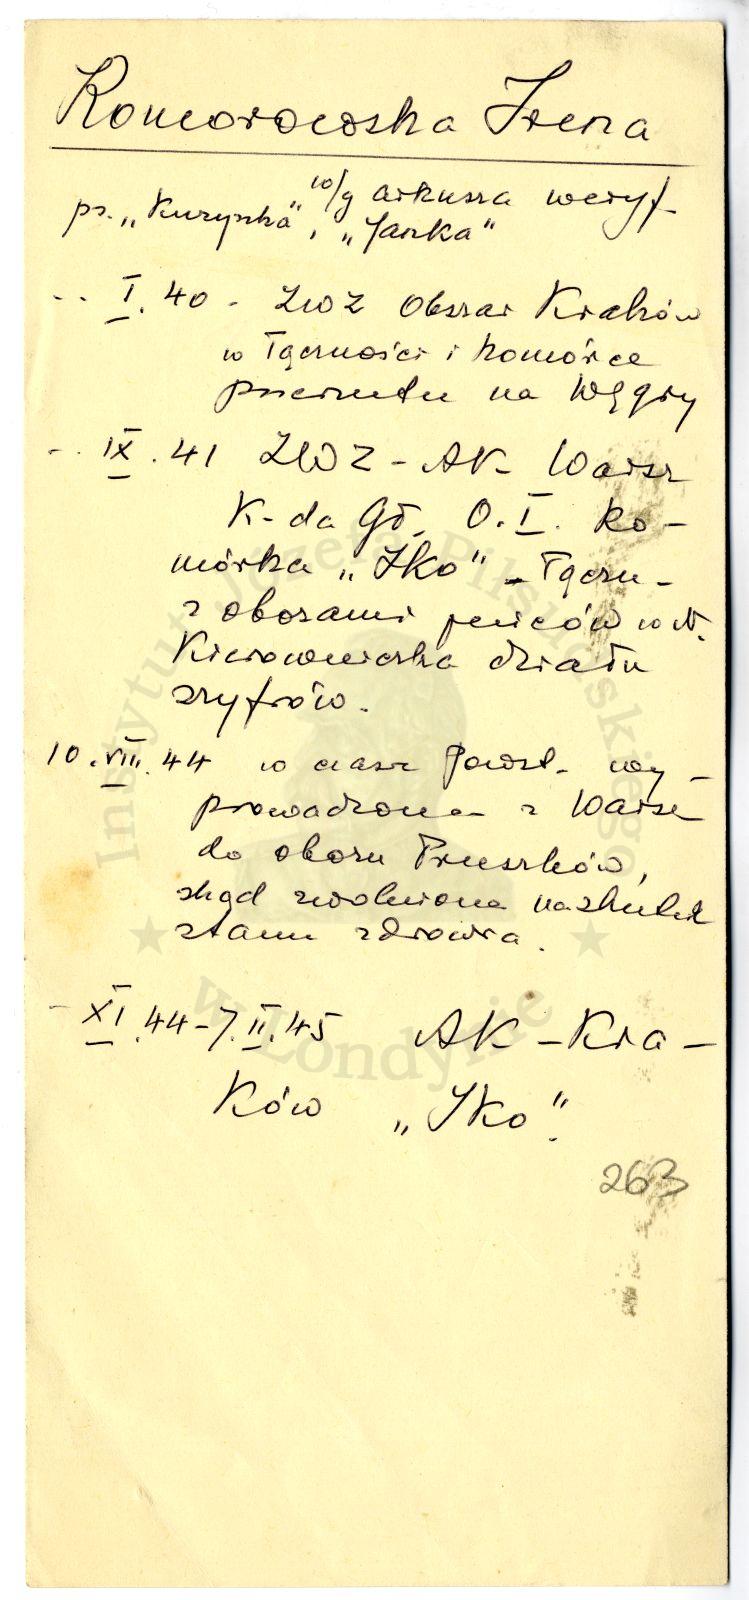 Komorowska Irena
w/g arkusza weryf.
ps. „Kuzynka”, „Janka”
-- I.40 - ZWZ Obszar Kraków
w łączności i komórce
przerzutu na Węgry
-- IX.41 ZWZ-AK- Warsz
K-da Gł. O.I. Ko-
mórka „Iko” - Łączn-
z obozami jeńców w N.
Kierowniczka działu
szyfrów.
10.VIII.44 w czasie Powst. wy-
prowadzona z Warsz
do obozu Pruszków,
skąd zwolniona na skutek
stanu zdrowia.
- XI.44-7.II.45 AK-Kra-
ków „Iko”.
263
Instytut Józefa Piłsudskiego
w Londynie